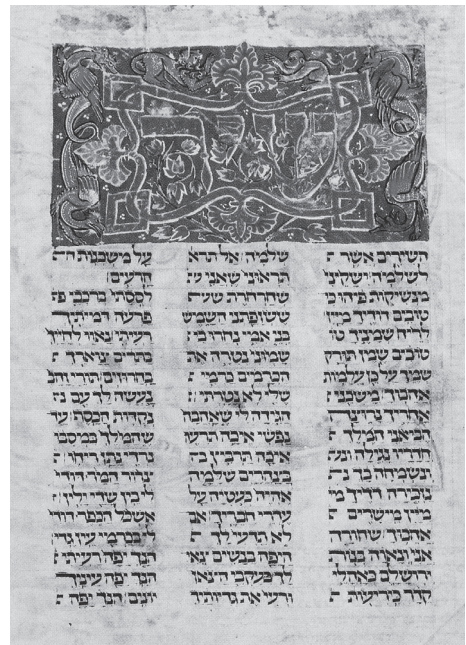 שיר
השירים אשר
לשלמה ישקיני
מנשיקות פיהו כי
טובים דודיך מיין
לריח שמניך
טובים שמן תורק
שמך על כן עלמות
אהבוך משכני
אחריך נרוצה
הביאני המלך
חדריו נגילה ונש
ונשמחה בך
נזכירה דדיך מי
מיין מישרים
אהבוך שחורה
אני ונאוה בנות
ירושלם כאהלי
קדר כיריעות
שלמה אל תרא
תראוני שאני
שחרחרת
ששזפתני השמש
בני אמי נחרו בי
שמוני נטרה את
הכרמים כרמי
שלי לא נטרתי
הגידה לי שאהבה
נפשי איכה תרעה
איכה תרביץ
בצהרים שלמה
אהיה כעטיה על
עדרי חבריך
לא תדעי לך
היפה בנשים צאי
לך בעקבי הצאן
ורעי את גדיתיך
על משכנות
הרעים
לססתי ברכבי פר
פרעה דמיתיך
רעיתי נאוו לחייך
בתרים צוארך
בחרוזים תורי זהב
נעשה לך עם
נקדות הכסף עד
שהמלך במסבו
נרדי נתן ריחו
צרור המר דודי
לי בין שדי ילין
אשכל הכפר דודי
לי בכרמי עין גדי
הנך יפה רעיתי
הנך יפה עיניך
יונים הנך יפה